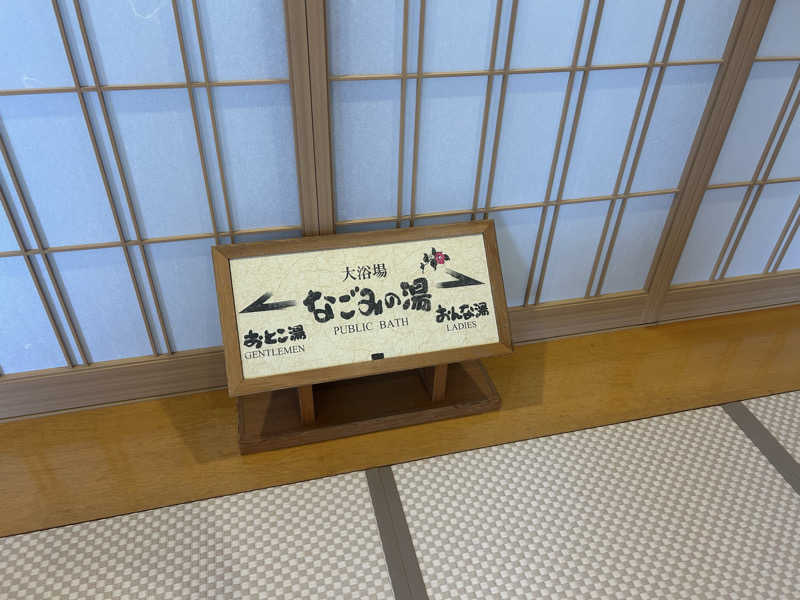 大浴場
なごみの湯
PUBLIC BATH
おとこ湯
GENTLEMEN
おんな湯
LADIES